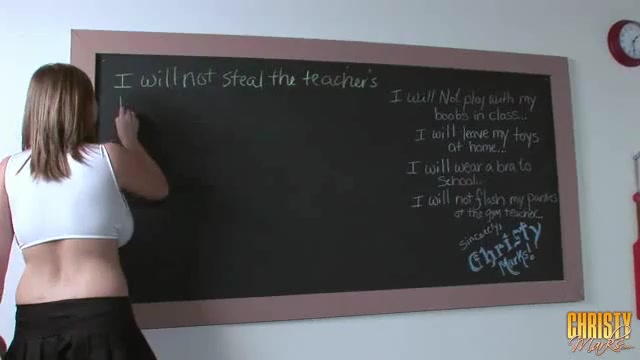 I will not steal the teacher's
I will Not play with my
boobs in class...
I will leave my toys
at home...
I will wear a bra to
School...
I will not flash my panties
at the gym teacher...
Sincerely,
Christy
Marks!
CHRISTY
Marks.com